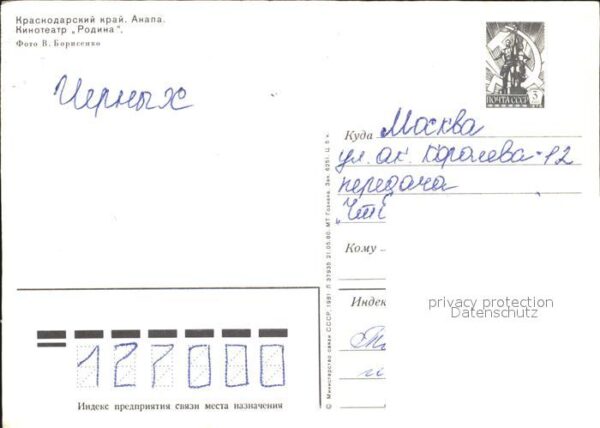 Краснодарский край. Анапа.
Кинотеатр „Родина“.
Фото В. Борисенко
Черных
ПОЧТА СССР 3
Куда Москва
ул. ак. Королева-12
передача
Кому
Индекс
privacy protection
Datenschutz
127000
Индекс предприятия связи места назначения
© Министерство связи СССР, 1981 Л 37935 21.05.80. МТ Гознака. Зак. 6251. Ц. 5 к.